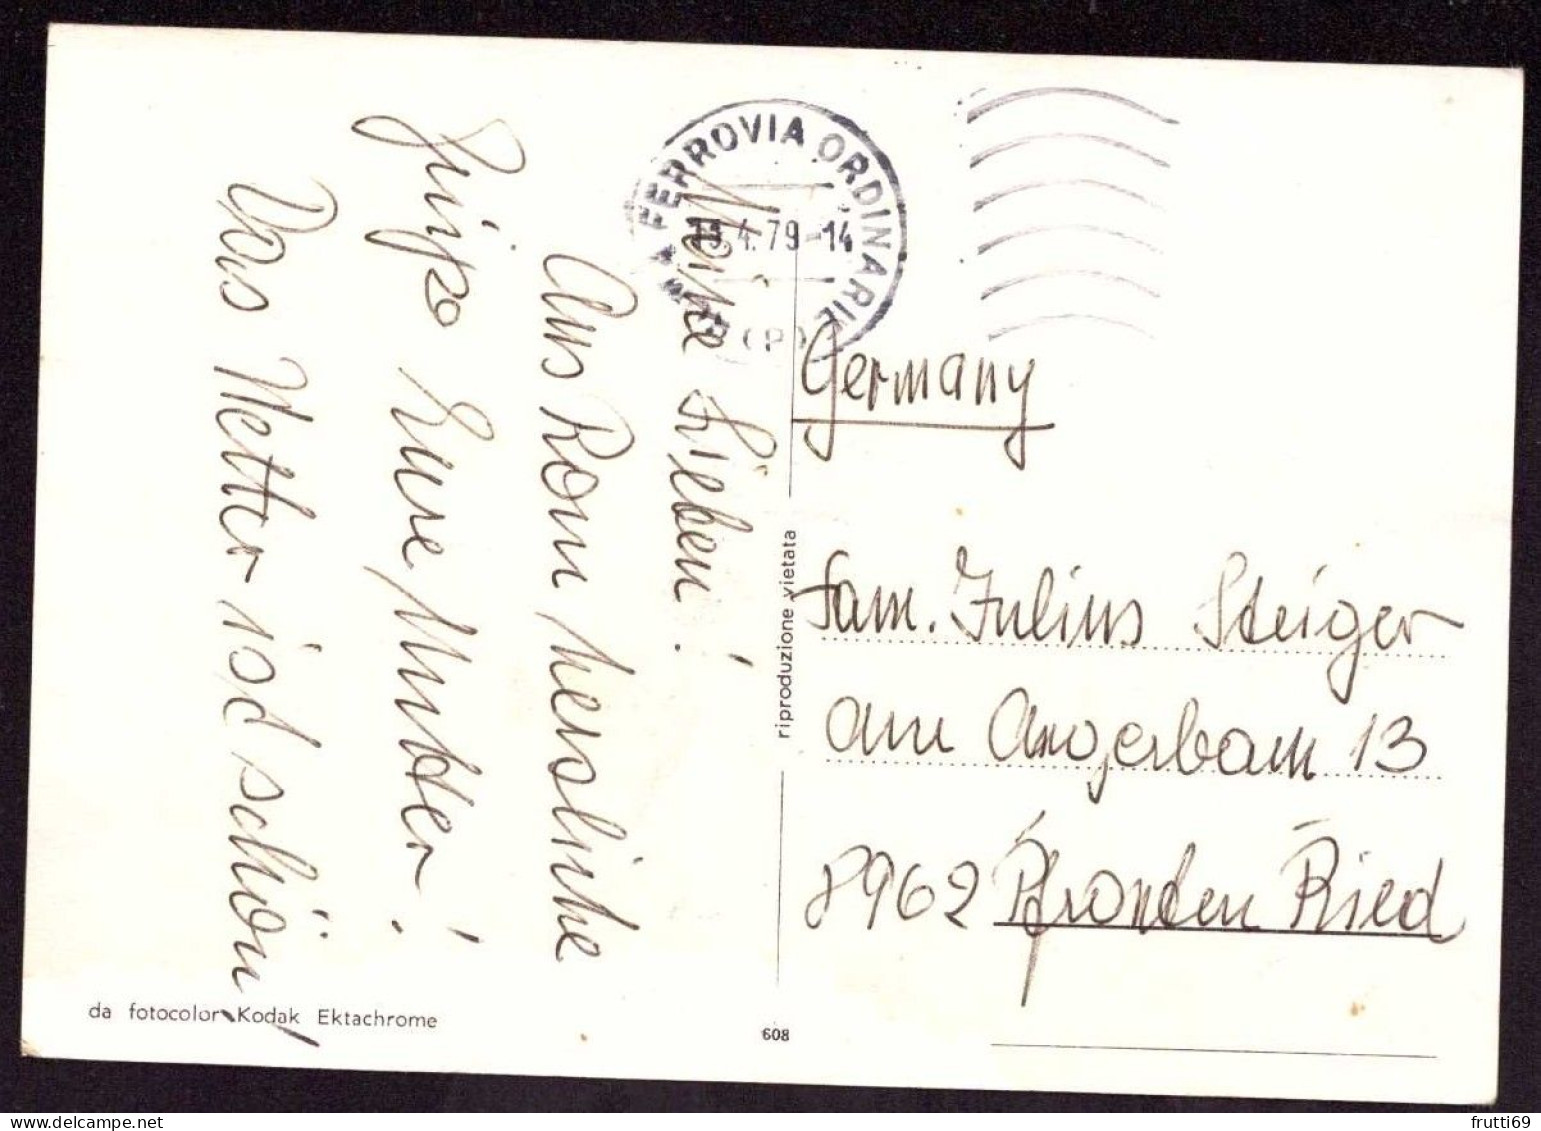 Meine Lieben!
Aus Rom herzliche
Grüße Eure Mutter!
Das Wetter ist schön!
FERROVIA ORDINARIE
13.4.79-14
(P)
Germany
Fam. Julius Steiger
am Angerbam 13
8962 Pfronten Ried
riproduzione vietata
da fotocolor Kodak Ektachrome
608
frutti69